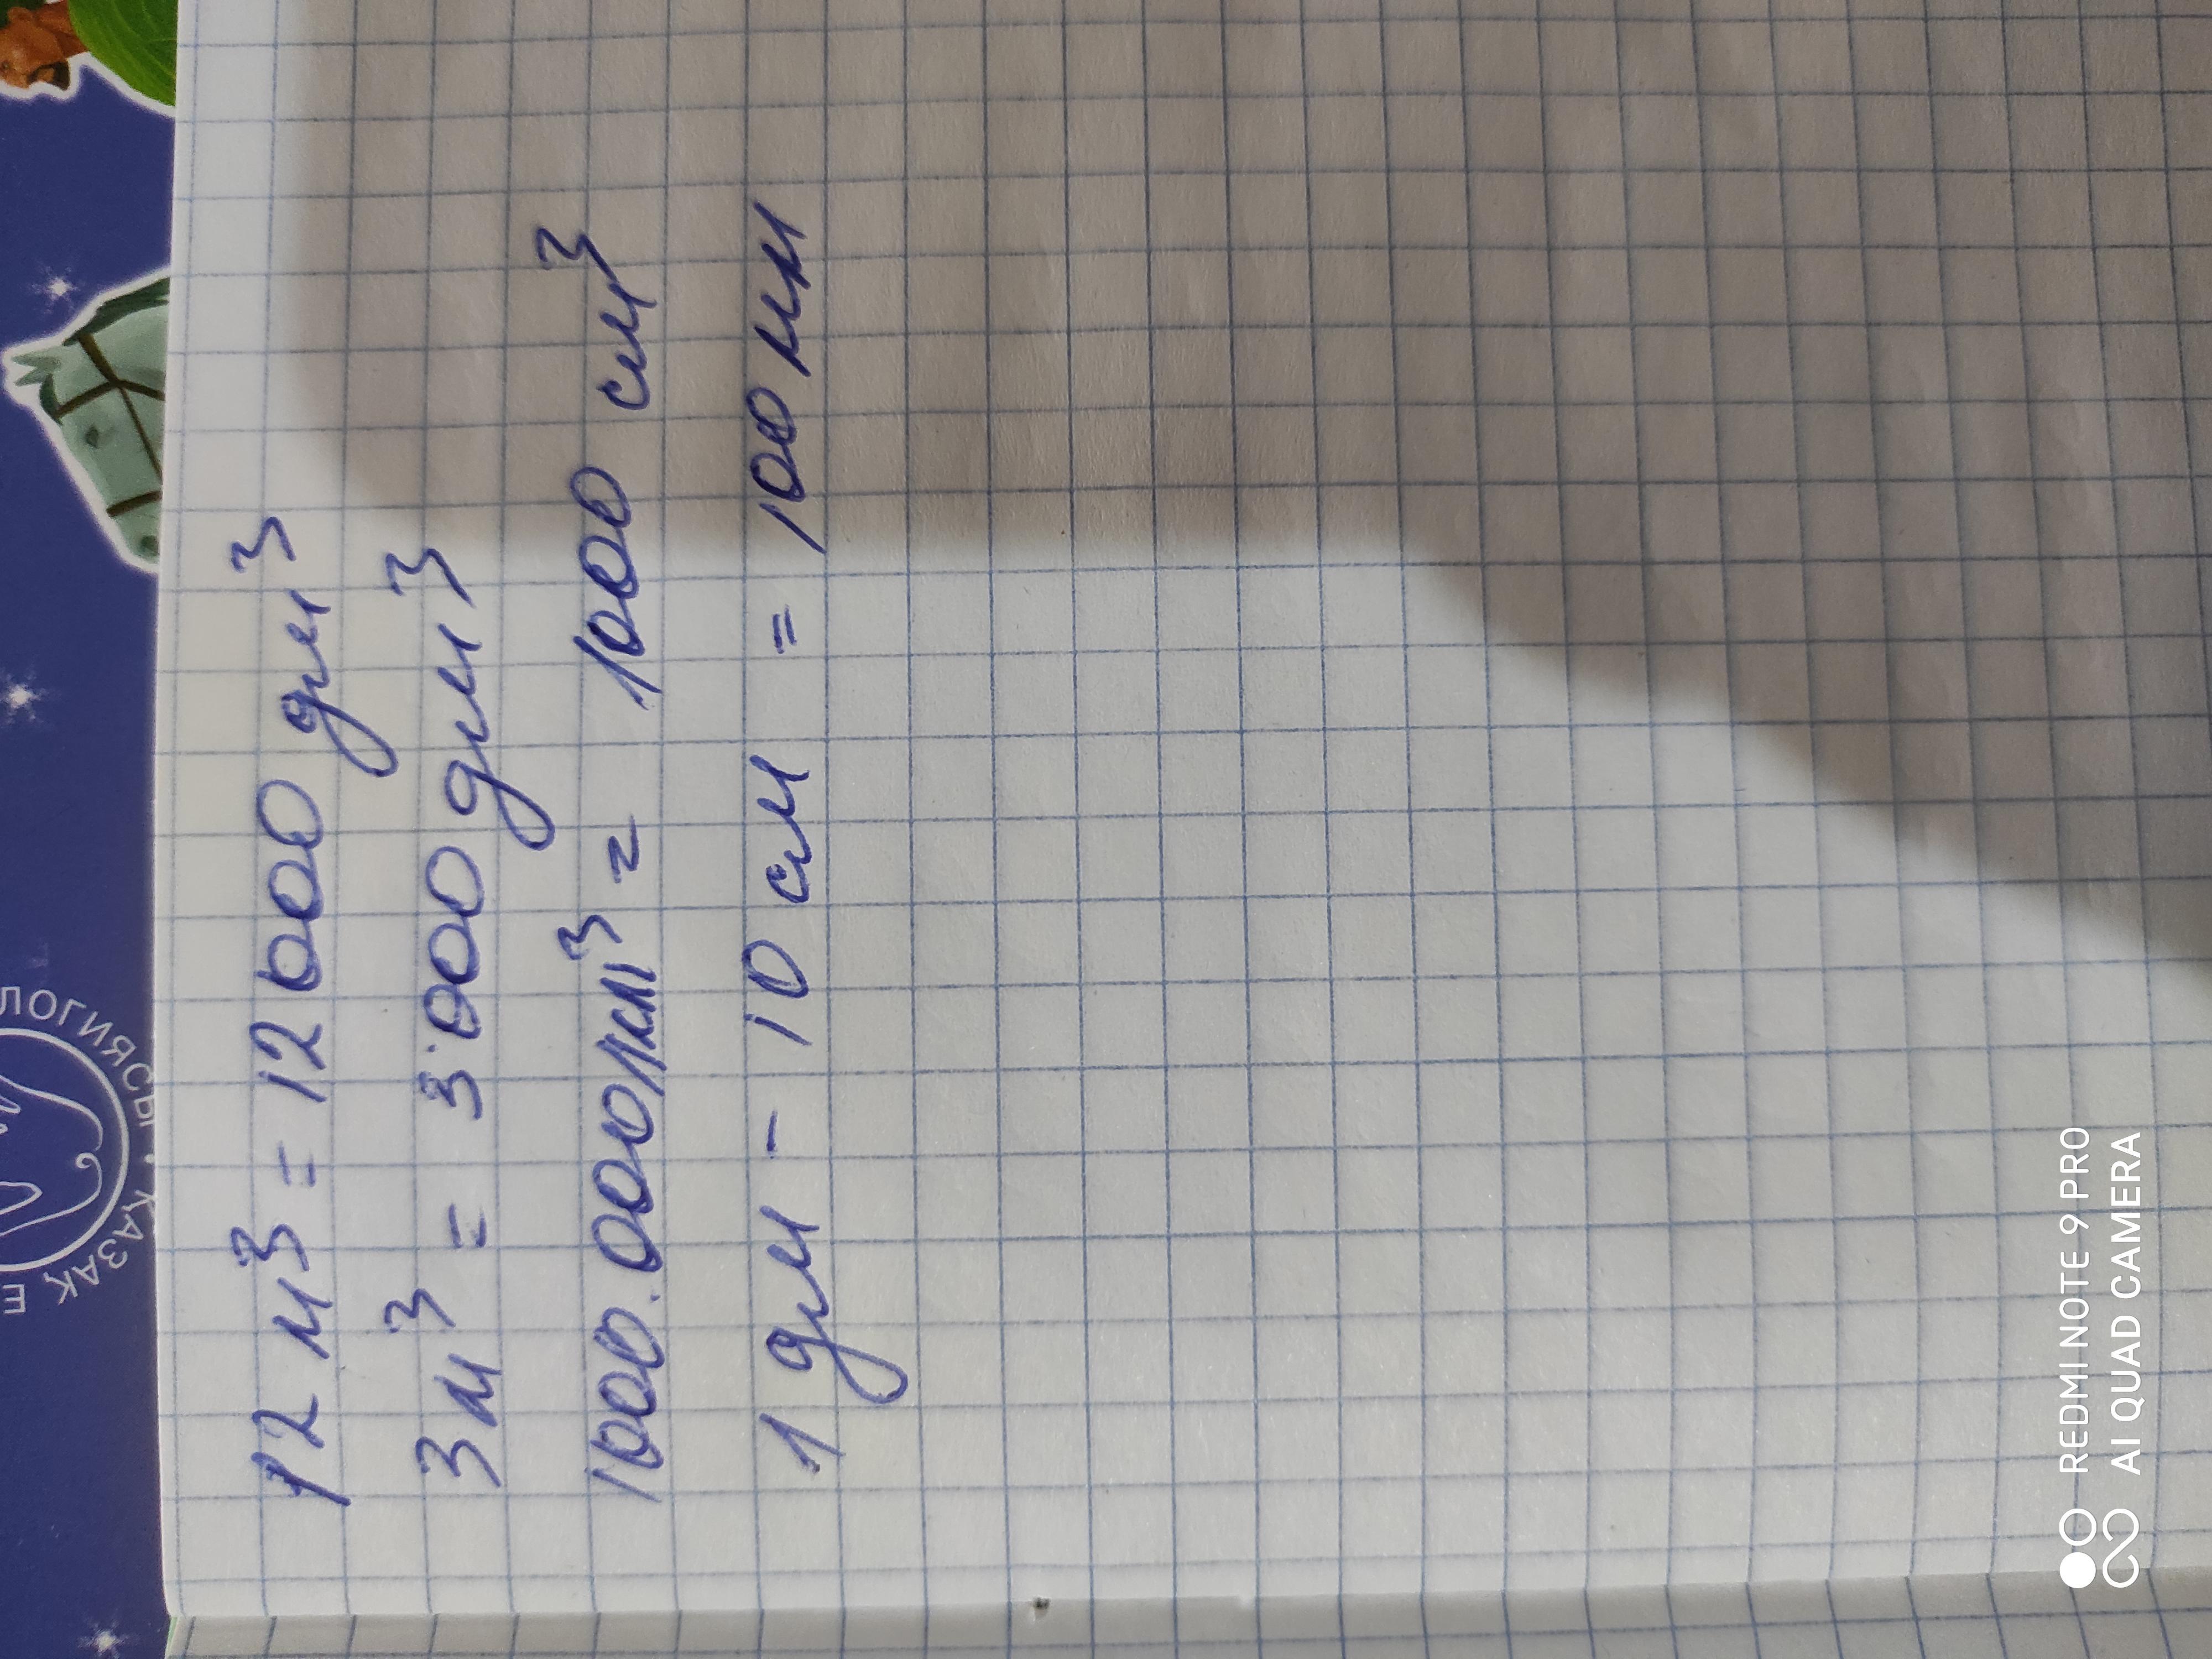 12 м³ = 12 000 дм³
3м³ = 3 000 дм³
1000.000мм³ = 1000 см³
1 дм - 10 см = 100 мм
ЛОГИЯСЫ · ҚАЗАҚ Е
REDMI NOTE 9 PRO
AI QUAD CAMERA